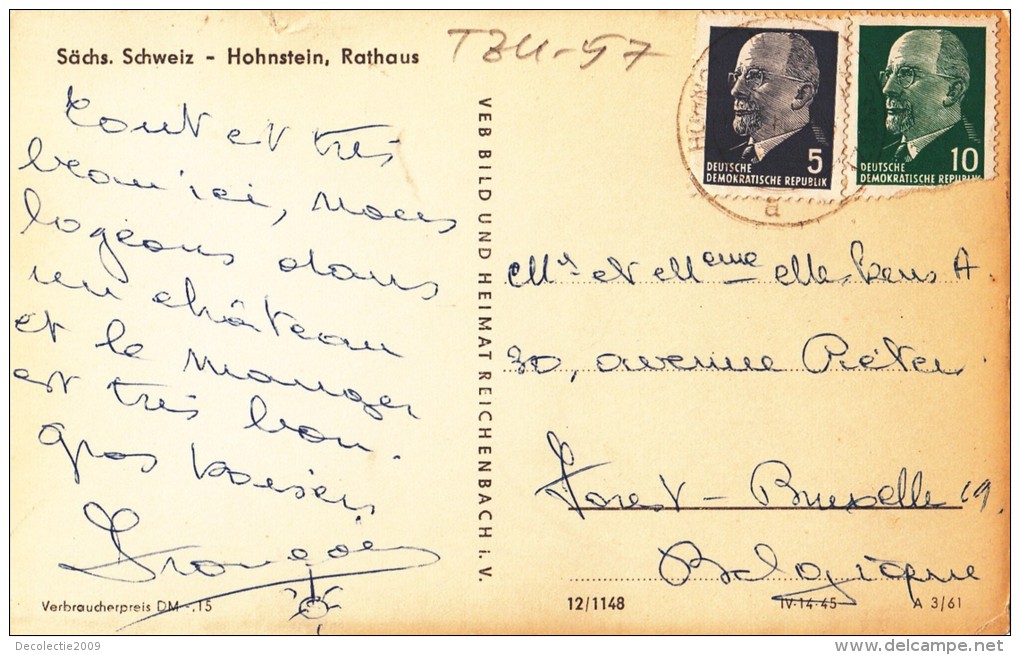 Sächs. Schweiz - Hohnstein, Rathaus
Tout et très
beau ici, nous
logeons dans
un château
et le manger
est très bon.
gros baisers
François
Verbraucherpreis DM -.15
VEB BILD UND HEIMAT REICHENBACH i. V.
TZU-57
5
DEUTSCHE
DEMOKRATISCHE REPUBLIK
10
DEUTSCHE
DEMOKRATISCHE REPUBLIK
a
Mr et Meme A.
30, avenue
Forest - Bruxelle 19.
Belgique
12/1148
IV-14-45
A 3/61
Decolectie2009
www.delcampe.net